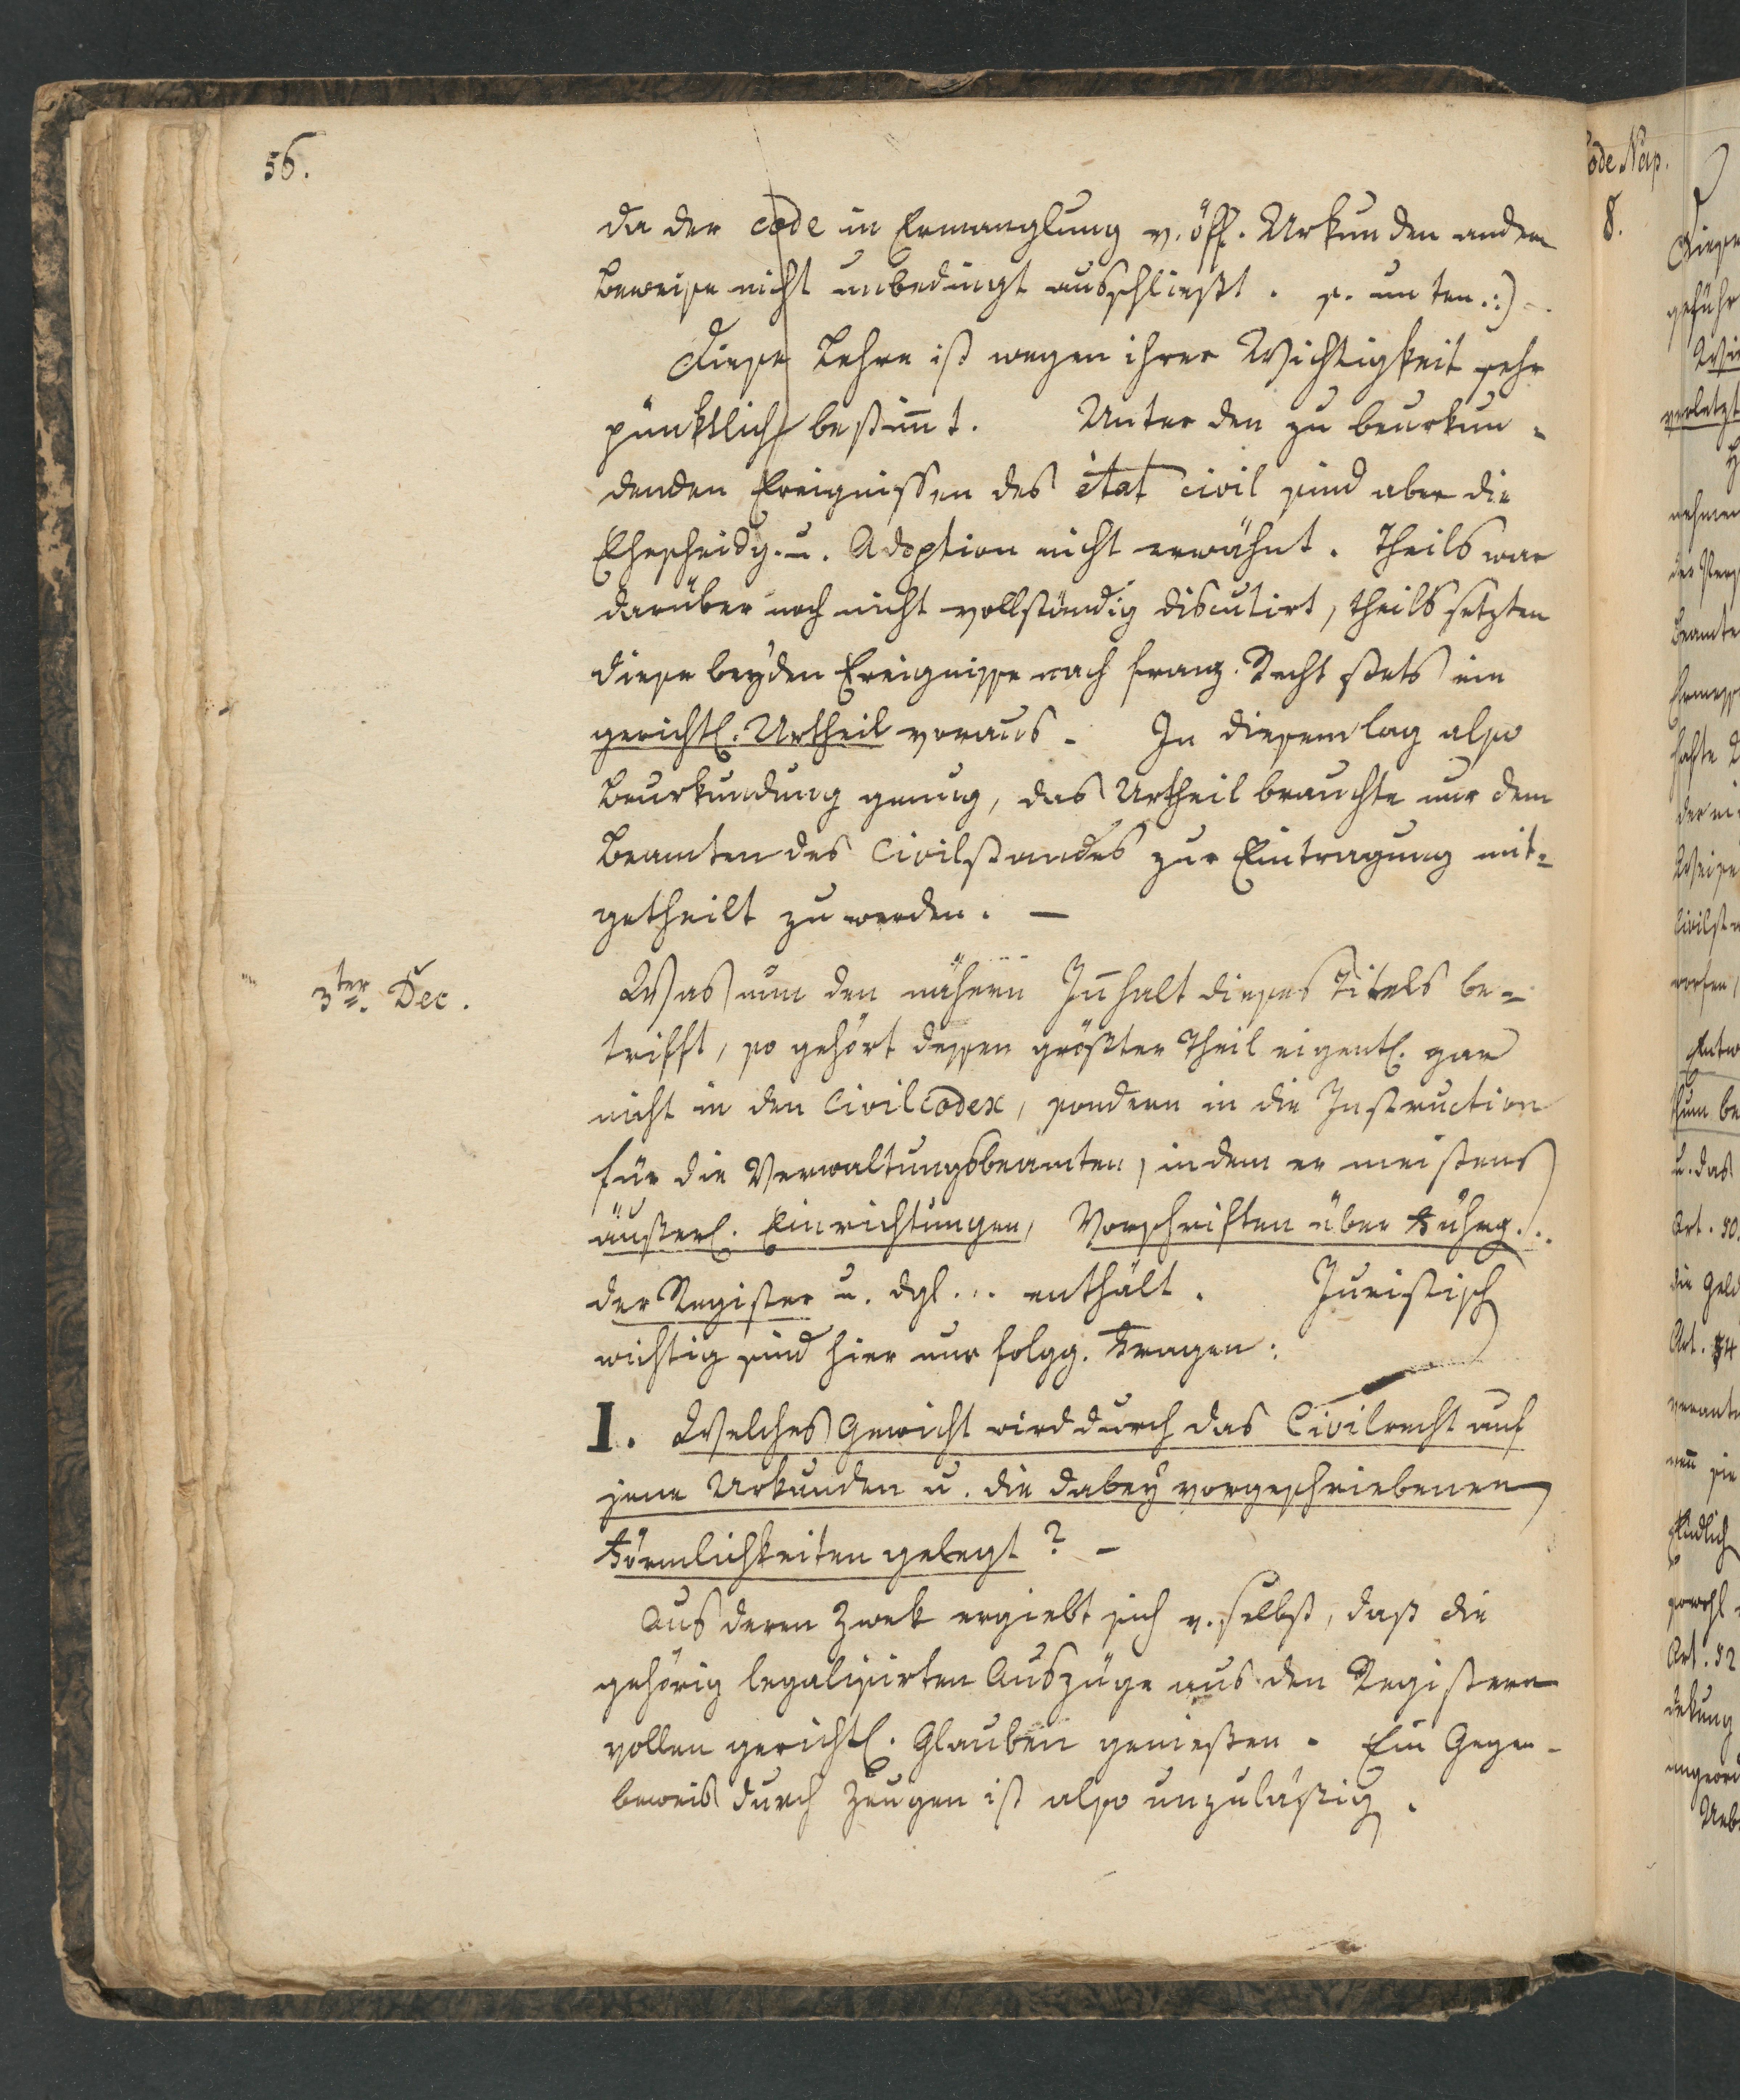 56.
da der code in Ermanglung v. öff. Urkunden andere
Beweise nicht unbedingt ausschließt. s. unten.:) -
Diese Lehre ist wegen ihrer Wichtigkeit sehr
pünktlich bestim̄t. Unter den zu beurkun-
denden Ereignissen des état civil sind aber die
Ehescheidg. u. Adoption nicht erwähnt. Theils war
darüber noch nicht vollständig discutirt, theils setzten
diese beyden Ereignisse nach franz. Recht stets ein
gerichtl. Urtheil voraus. In diesem lag also
Beurkundung genug, das Urtheil brauchte nur dem
Beamten des Civilstandes zur Eintragung mit-
getheilt zu werden. —
3ter Dec.
Was nun den nähern Iñhalt dieses Titels be-
trifft, so gehört dessen größter Theil eigentl. gar
nicht in den Civilcodex, sondern in die Instruction
für die Verwaltungsbeamten, indem er meistens
äußerl. Einrichtungen, Vorschriften über Führg...
der Register u. dgl... enthält. Juristisch
wichtig sind hier nur folgg. Fragen:
I. Welches Gewicht wird durch das Civilrecht auf
jene Urkunden u. die dabey vorgeschriebenen
Förmlichkeiten gelegt? -
Aus deren Zwek ergiebt sich v. selbst, daß die
gehörig legalisirten Auszüge aus den Registern
vollen gerichtl. Glauben genießen. Ein Gegen-
beweis durch Zeugen ist also unzuläßig.
Code Nap.
8.